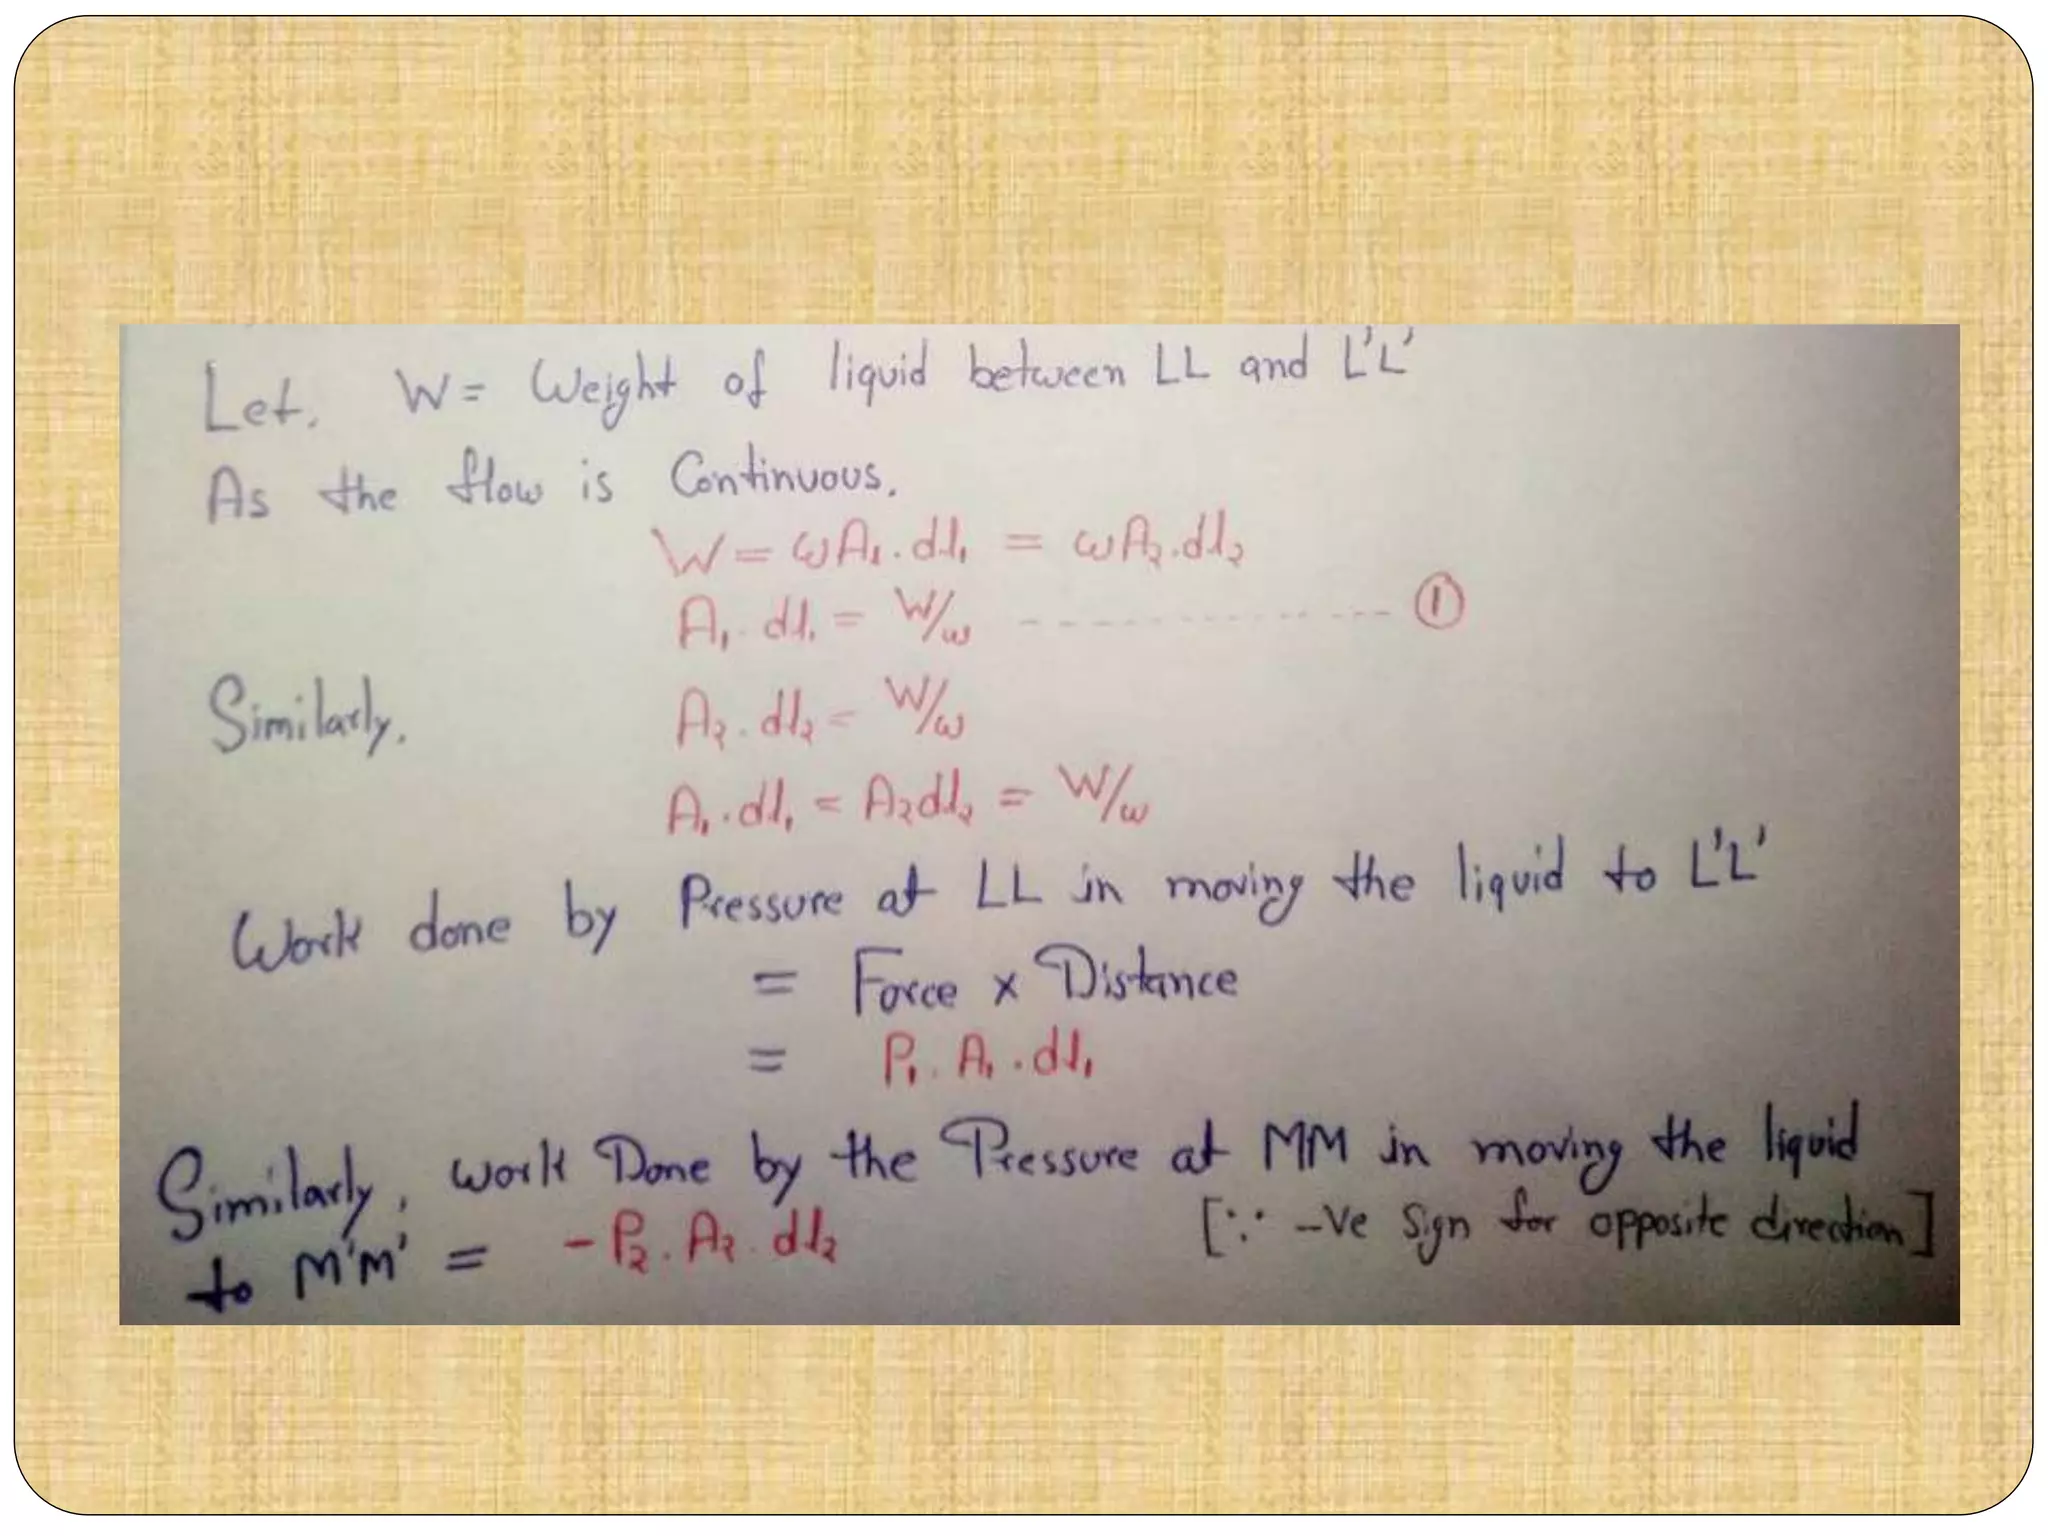 Let. W = Weight of liquid between LL and L'L'
As the flow is Continuous.
W = ωA₁.dl₁ = ωA₂.dl₂
A₁.dl₁ = W/ω ---------------- ①
Similarly. A₂.dl₂ = W/ω
A₁.dl₁ = A₂dl₂ = W/ω
Work done by Pressure at LL in moving the liquid to L'L'
= Force × Distance
= P₁.A₁.dl₁
Similarly, work Done by the Pressure at MM in moving the liquid
to M'M' = -P₂.A₂.dl₂ [∵ -Ve Sign for opposite direction]